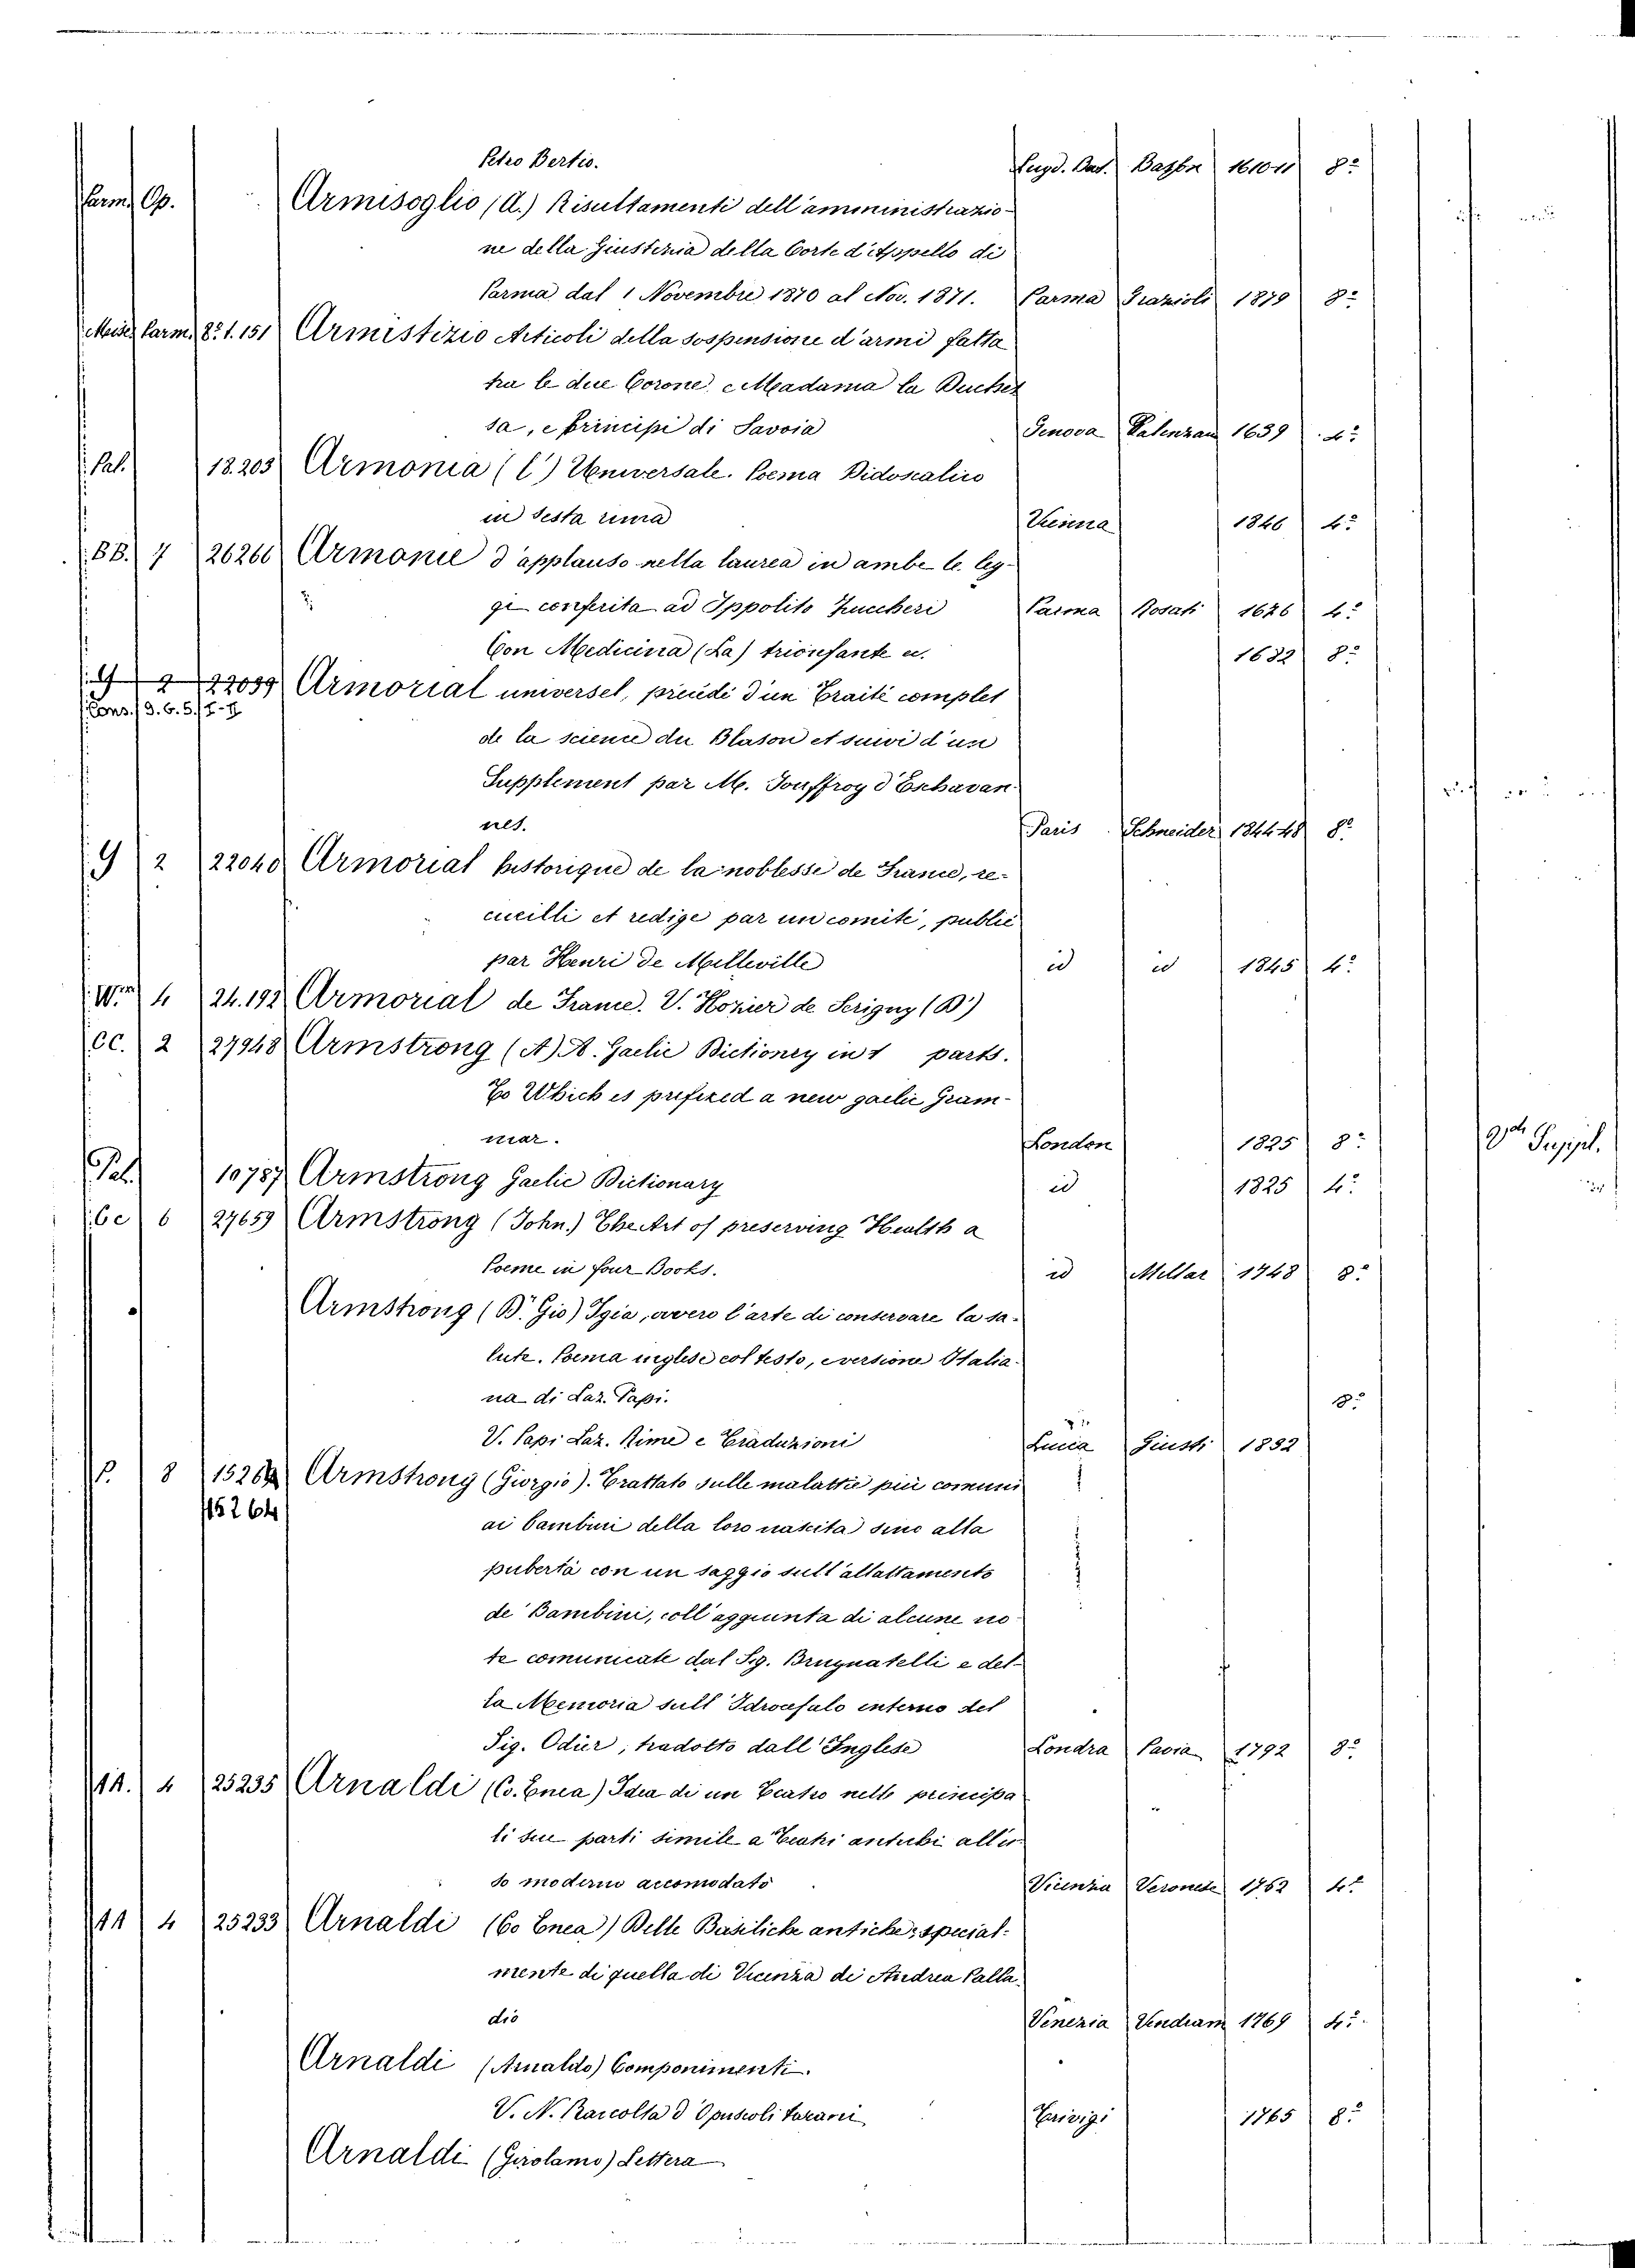 Petro Bertio. Lugd. Bat. Basson 161011 8º
Parm. Op. Armisoglio (A.) Risultamenti dell'amministrazio-
ne della Giustizia della Corte d'Appello di
Parma dal 1 Novembre 1870 al Nov. 1871. Parma Grazioli 1879 8º
Misc. Parm. 8º. 1. 151 Armistizio Articoli della sospensione d'armi fatta
tra le due Corone, Madama la Duches
sa, e Principi di Savoia Genova 1639 4º
Pal. 18.203 Armonia (l') Universale. Poema Didoscalico
in sesta rima Vienna 1846 4º
BB. 7 26266 Armonie d'applauso nella laurea in ambe le leg-
gi conferita ad Ippolito Zuccheri Parma Rosati 1676 4º
Con Medicina (La) trionfante ec. 1682 8º
G 2 22039 Armorial universel, précédé d'un Traité complet
Cons. 9. G. 5. I-II
de la science du Blason et suivi d'un
Supplement par M. Jouffroy d'Eschavan
nes. Paris Schneider 184448 8º
G 2 22040 Armorial historique de la noblesse de France, re-
cueilli et redige par un comité, public
par Henri de Milleville id id 1845 4º
4 24.192 Armorial de France. V. Hozier de Serigny (D')
CC. 2 27948 Armstrong (A) A. Gaelic Dictionry in 1 parts.
To Which is prefixed a new gaelic Gram-
mar. London 1825 8º 2de Suppl.
Pal. 10787 Armstrong Gaelic Dictionary id 1825 4º
6c 6 27659 Armstrong (John.) The Art of preserving Health a
Poeme in four Books. id Millar 1748 8º
Armstrong (Dr. Gio) Igia, ovvero l'arte di conservare la sa-
lute. Poema inglese col testo, e versione Italia-
na di Laz. Papi. 8º
V. Papi Laz. Rime e Traduzioni Lucca Giusti 1832
P. 8 15264 Armstrong (Giorgio). Trattato sulle malattie più comuni
15264
ai bambini della loro nascita sino alla
pubertà con un saggio sull'allattamento
de Bambini, coll'aggiunta di alcune no
te comunicate dal Sig. Brugnatelli e del-
la Memoria sull'Idrocefalo interno del
Sig. Odier, tradotto dall'Inglese Londra Pavia 1792 8º
11. 4 25235 Arnaldi (Co. Enea) Idea di un Teatro nelle principa
li sue parti simile a Teatri antichi all'u
so moderno accomodato Vicenza Veronese 1762 4º
11 4 25233 Arnaldi (Co Enea) Delle Basiliche antiche, special-
mente di quella di Vicenza di Andrea Palla
dio Venezia Vendram 1769 4º
Arnaldi (Arnaldo) Componimenti.
V. N. Raccolta d'Opuscoli Turani Trivigi 1765 8º
Arnaldi (Girolamo) Lettera